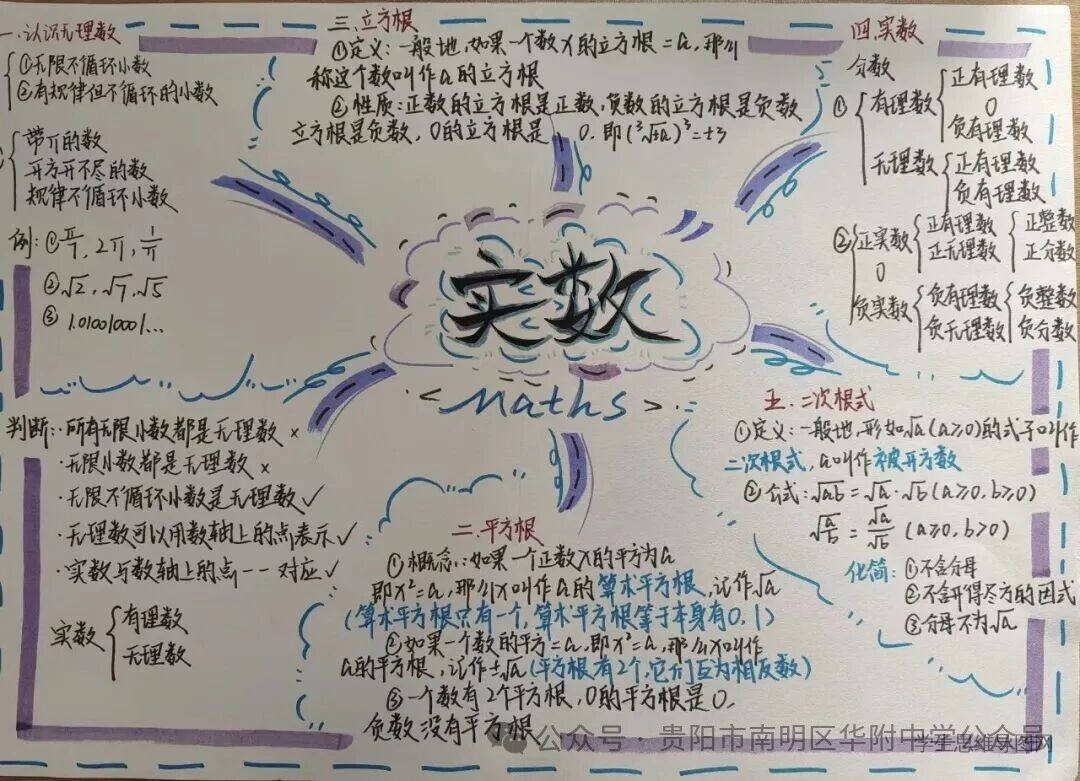 一.认识无理数
①无限不循环小数
②有规律但不循环的小数
带π的数
开方开不尽的数
规律不循环小数
例:①π/7, 2π, 1/π
②√2, √7, √5
③ 1.010010001...
判断:·所有无限小数都是无理数 ×
·无限小数都是无理数 ×
·无限不循环小数是无理数 ✓
·无理数可以用数轴上的点表示 ✓
·实数与数轴上的点一一对应 ✓
实数
有理数
无理数
三.立方根
①定义:一般地,如果一个数x的立方根=a,那么
称这个数叫作a的立方根
②性质:正数的立方根是正数,负数的立方根是负数
立方根是负数,0的立方根是 0.即
实数
< Maths >
二.平方根
①概念:如果一个正数x的平方为a
即x²=a,那么x叫作a的算术平方根,记作√a
(算术平方根只有一个,算术平方根等于本身有0,1)
②如果一个数的平方=a,即x²=a,那么x叫作
a的平方根,记作±√a(平方根有2个,它们互为相反数)
③一个数有2个平方根,0的平方根是0,
负数没有平方根
四.实数
分数
① 有理数 正有理数
0
负有理数
无理数 正有理数
负有理数
② 正实数 正有理数 正整数
正无理数 正分数
0
负实数 负有理数 负整数
负无理数 负分数
五.二次根式
①定义:一般地,形如√a(a≥0)的式子叫作
二次根式,a叫作被开方数
②公式:√ab=√a·√b(a≥0,b≥0)
√a/b=√a/√b (a≥0,b>0)
化简:①不含分母
②不含开得尽方的因式
③分母不为√a
公众号·贵阳市南明区华附中学公众号
学生思维导图网